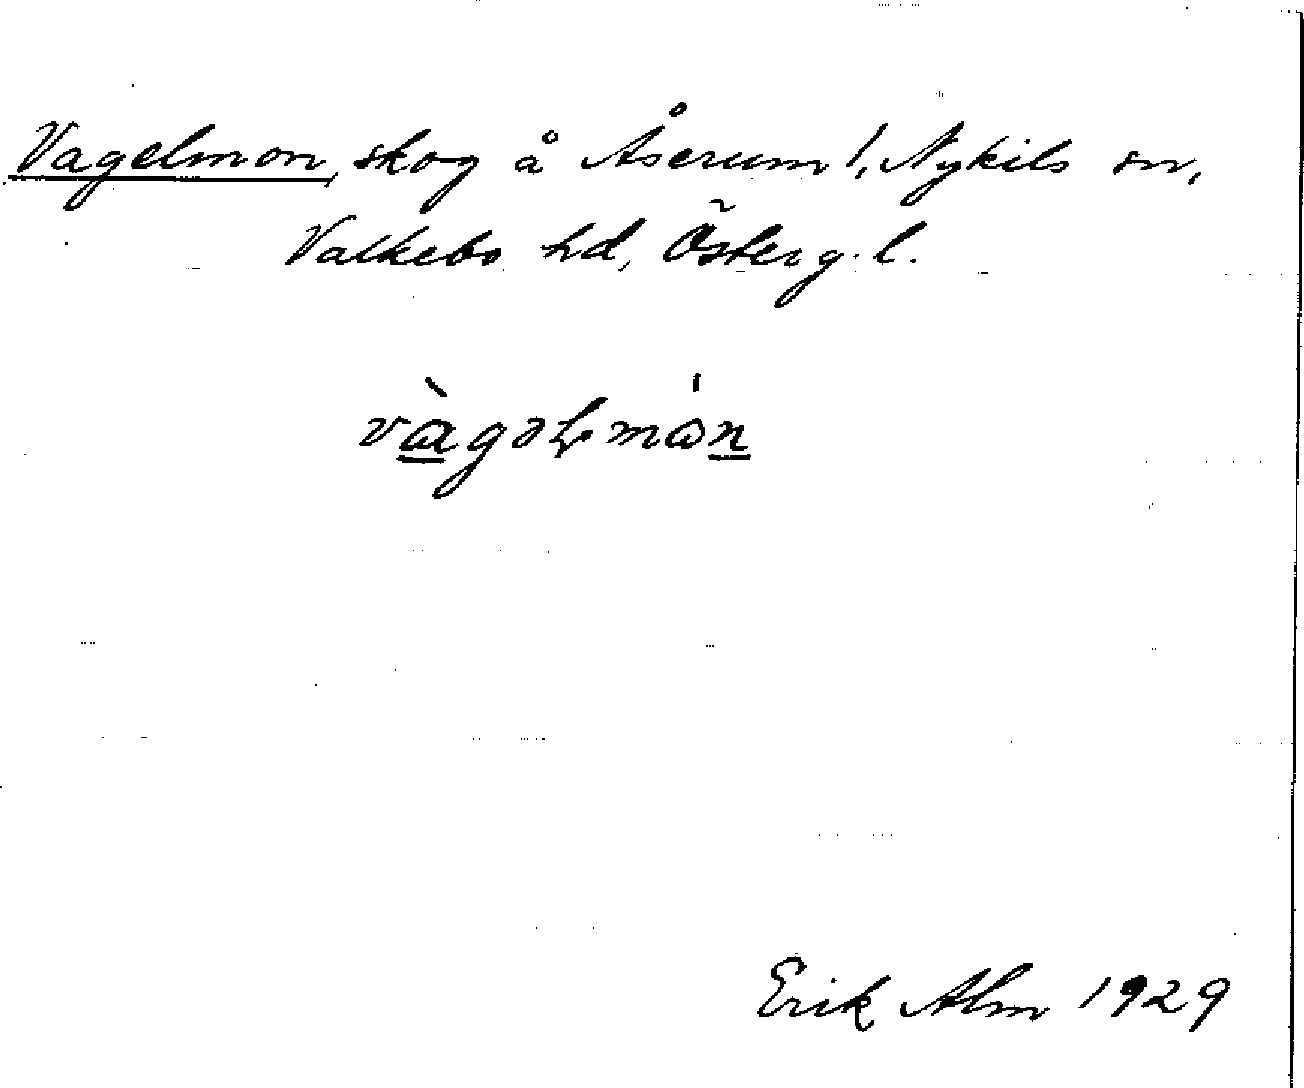 Vagelmon, skog å Åserum 1, Nykils sn,
Valkebo hd, Österg. l.
vàgəl̥món
Erik Alm 1929